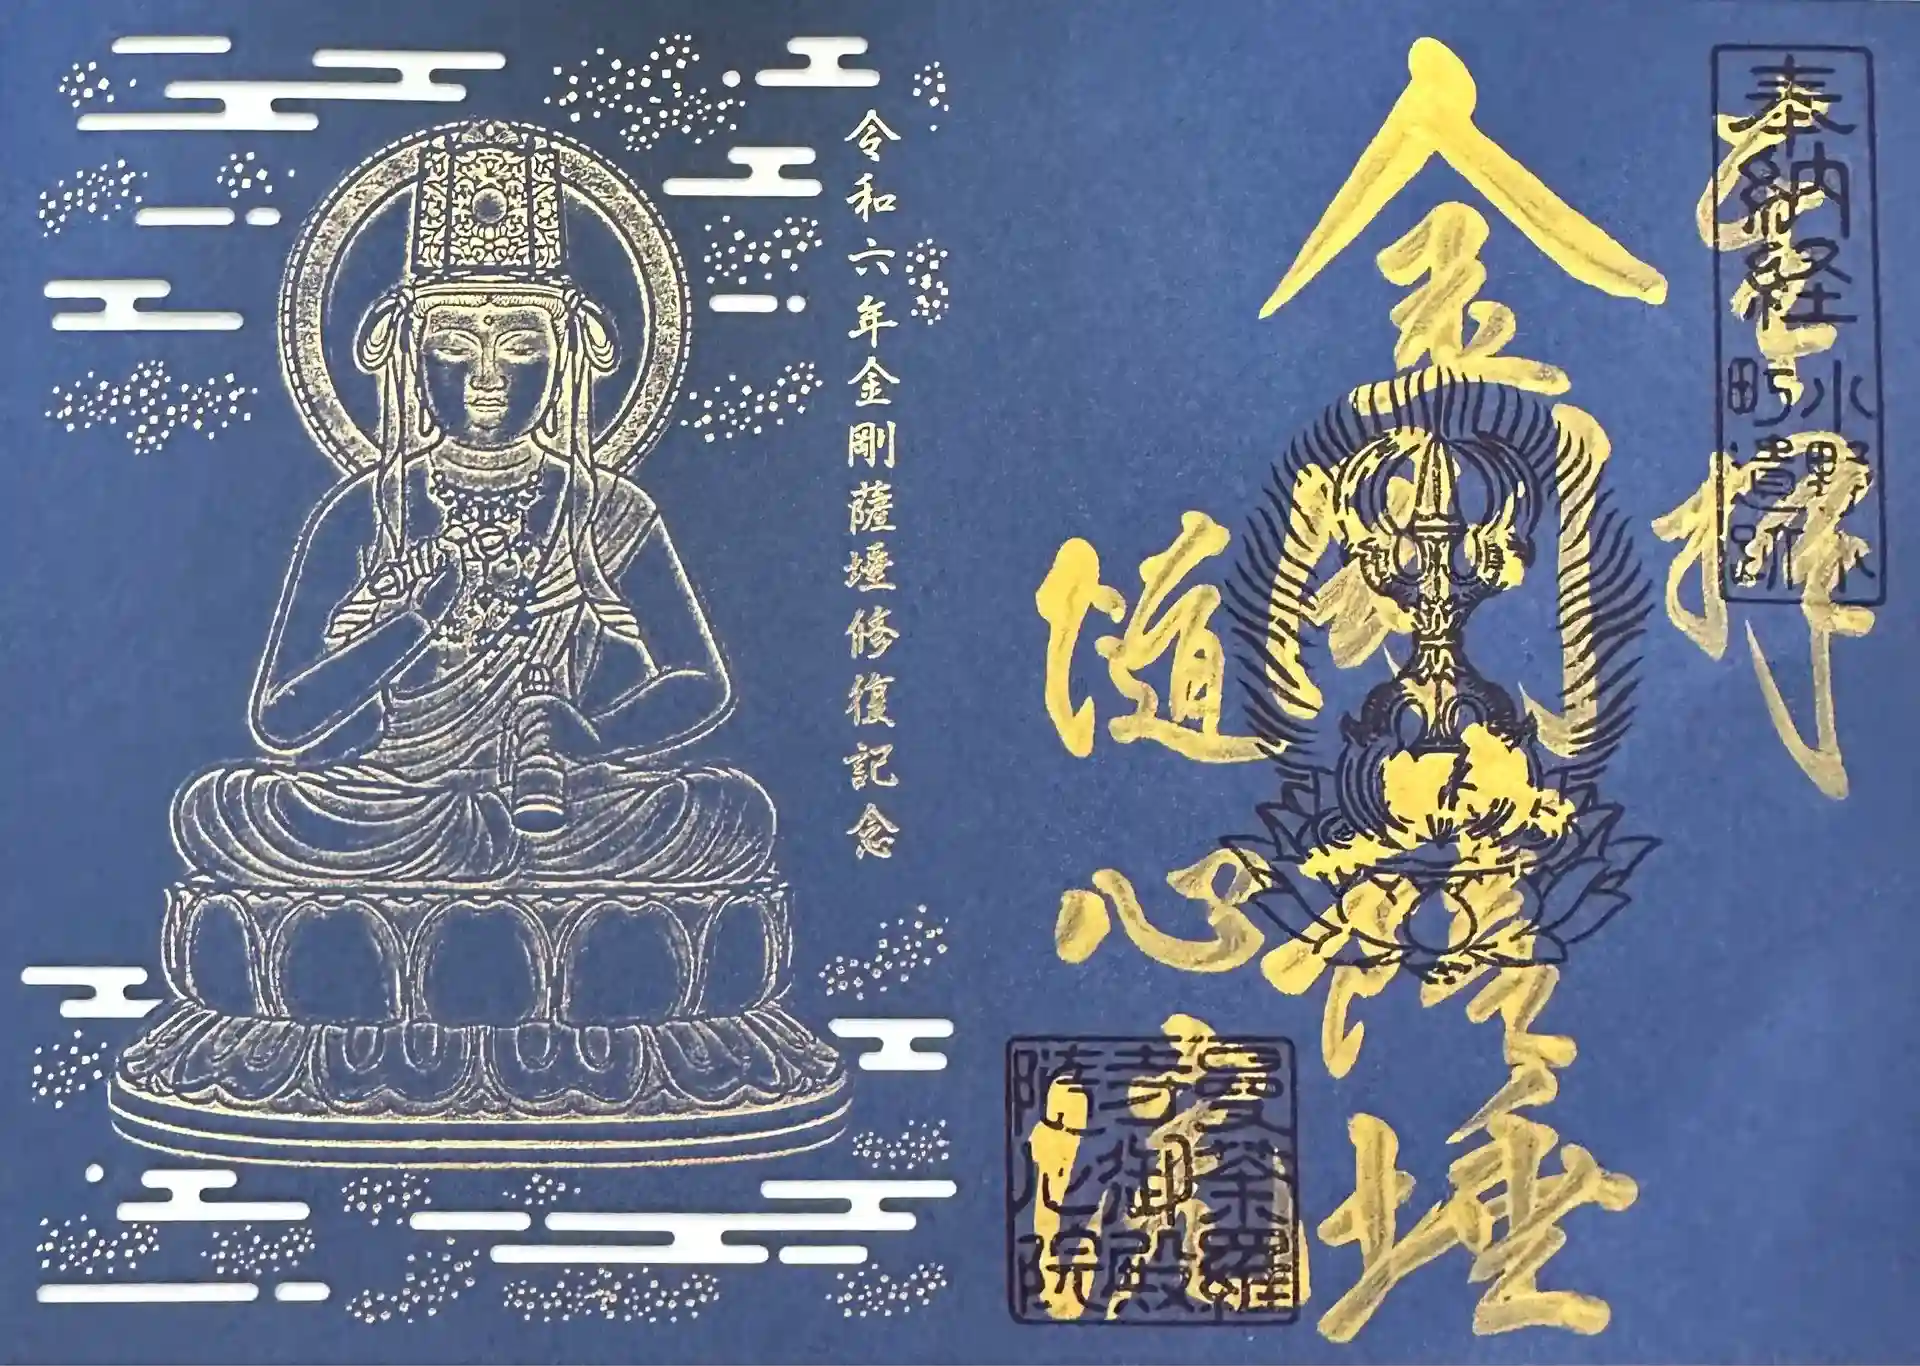 奉拝
奉納経
小野小
町遺跡
金剛薩埵
随心院
曼荼羅
寺御殿
隨心院
令和六年金剛薩埵修復記念